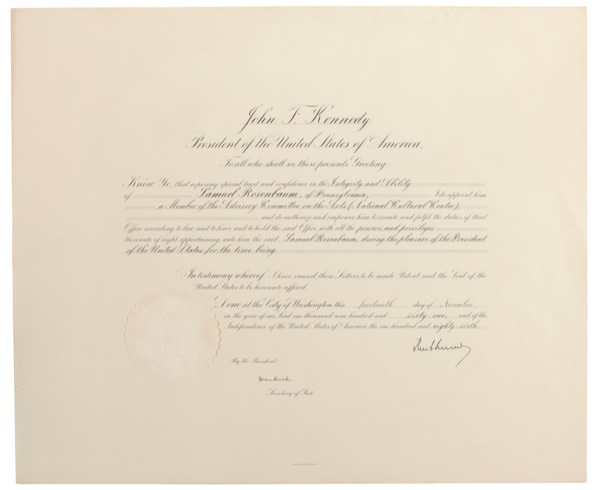 John F. Kennedy
President of the United States of America.
To all who shall see these presents, Greeting:
Know Ye, that reposing special trust and confidence in the Integrity and Ability
of Samuel Rosenbaum, of Pennsylvania, I do appoint him
a Member of the Advisory Committee on the Arts (National Cultural Center),
and do authorize and empower him to execute and fulfil the duties of that
Office according to law, and to have and to hold the said Office, with all the powers, and privileges
thereunto of right appertaining unto him the said Samuel Rosenbaum, during the pleasure of the President
of the United States, for the time being.
In testimony whereof, I have caused these Letters to be made Patent and the Seal of the
United States to be hereunto affixed.
Done at the City of Washington this day of November,
in the year of our Lord one thousand nine hundred and sixty-one, and of the
Independence of the United States of America the one hundred and eighty-sixth.
By the President:
Dean Rusk
Secretary of State.